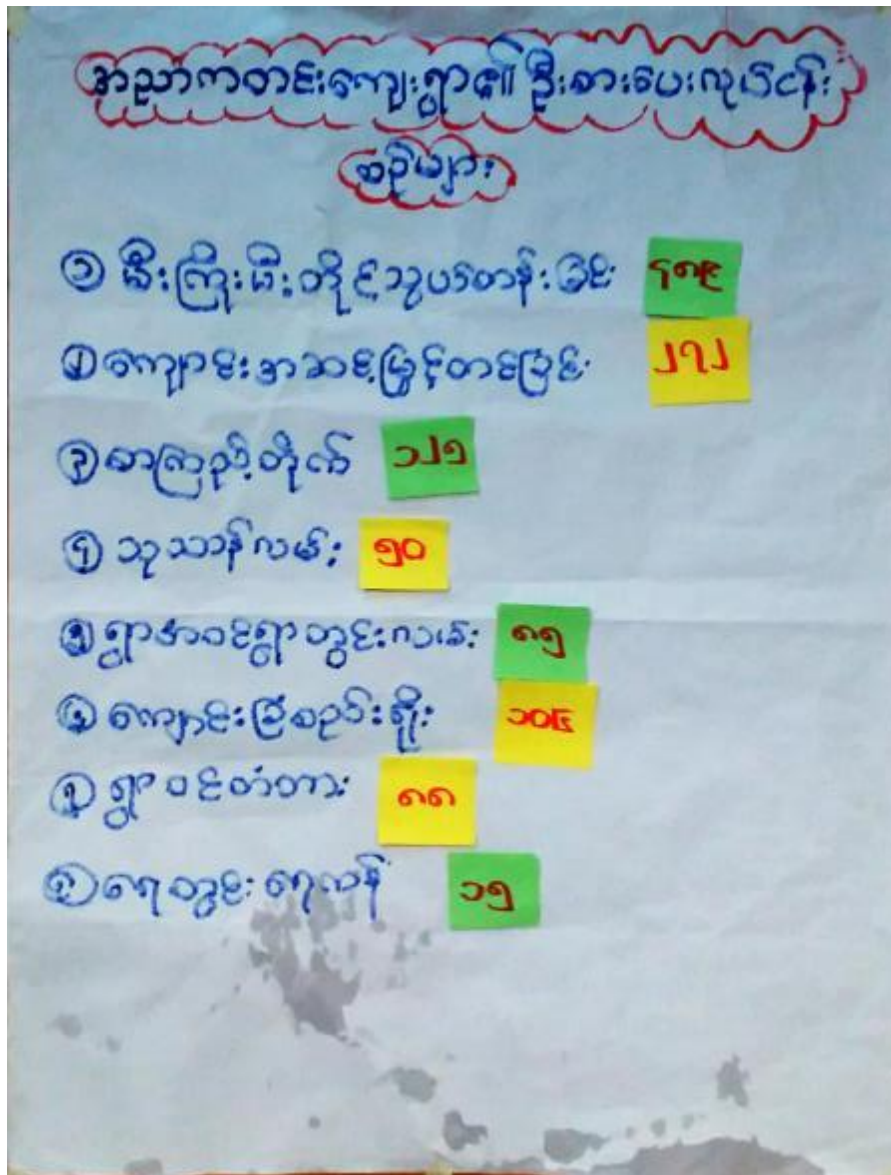 အညာကတင်းကျေးရွာ၏ ဦးစားပေးလုပ်ငန်း
စဉ်များ
၁ မီးကြိုးမီးတိုင်သွယ်တန်းခြင်း ၄၈၉
၂ ကျောင်းအဆင့်မြှင့်တင်ခြင်း ၂၇၂
၃ စာကြည့်တိုက် ၁၂၅
၄ သုသာန်လမ်း ၅၀
၅ ရွာအဝင်ရွာတွင်းလမ်း ၈၅
၆ ကျောင်းခြံစည်းရိုး ၁၀၆
၇ ရွာဝင်တံတား ၈၈
၈ ရေတွင်းရေကန် ၁၅